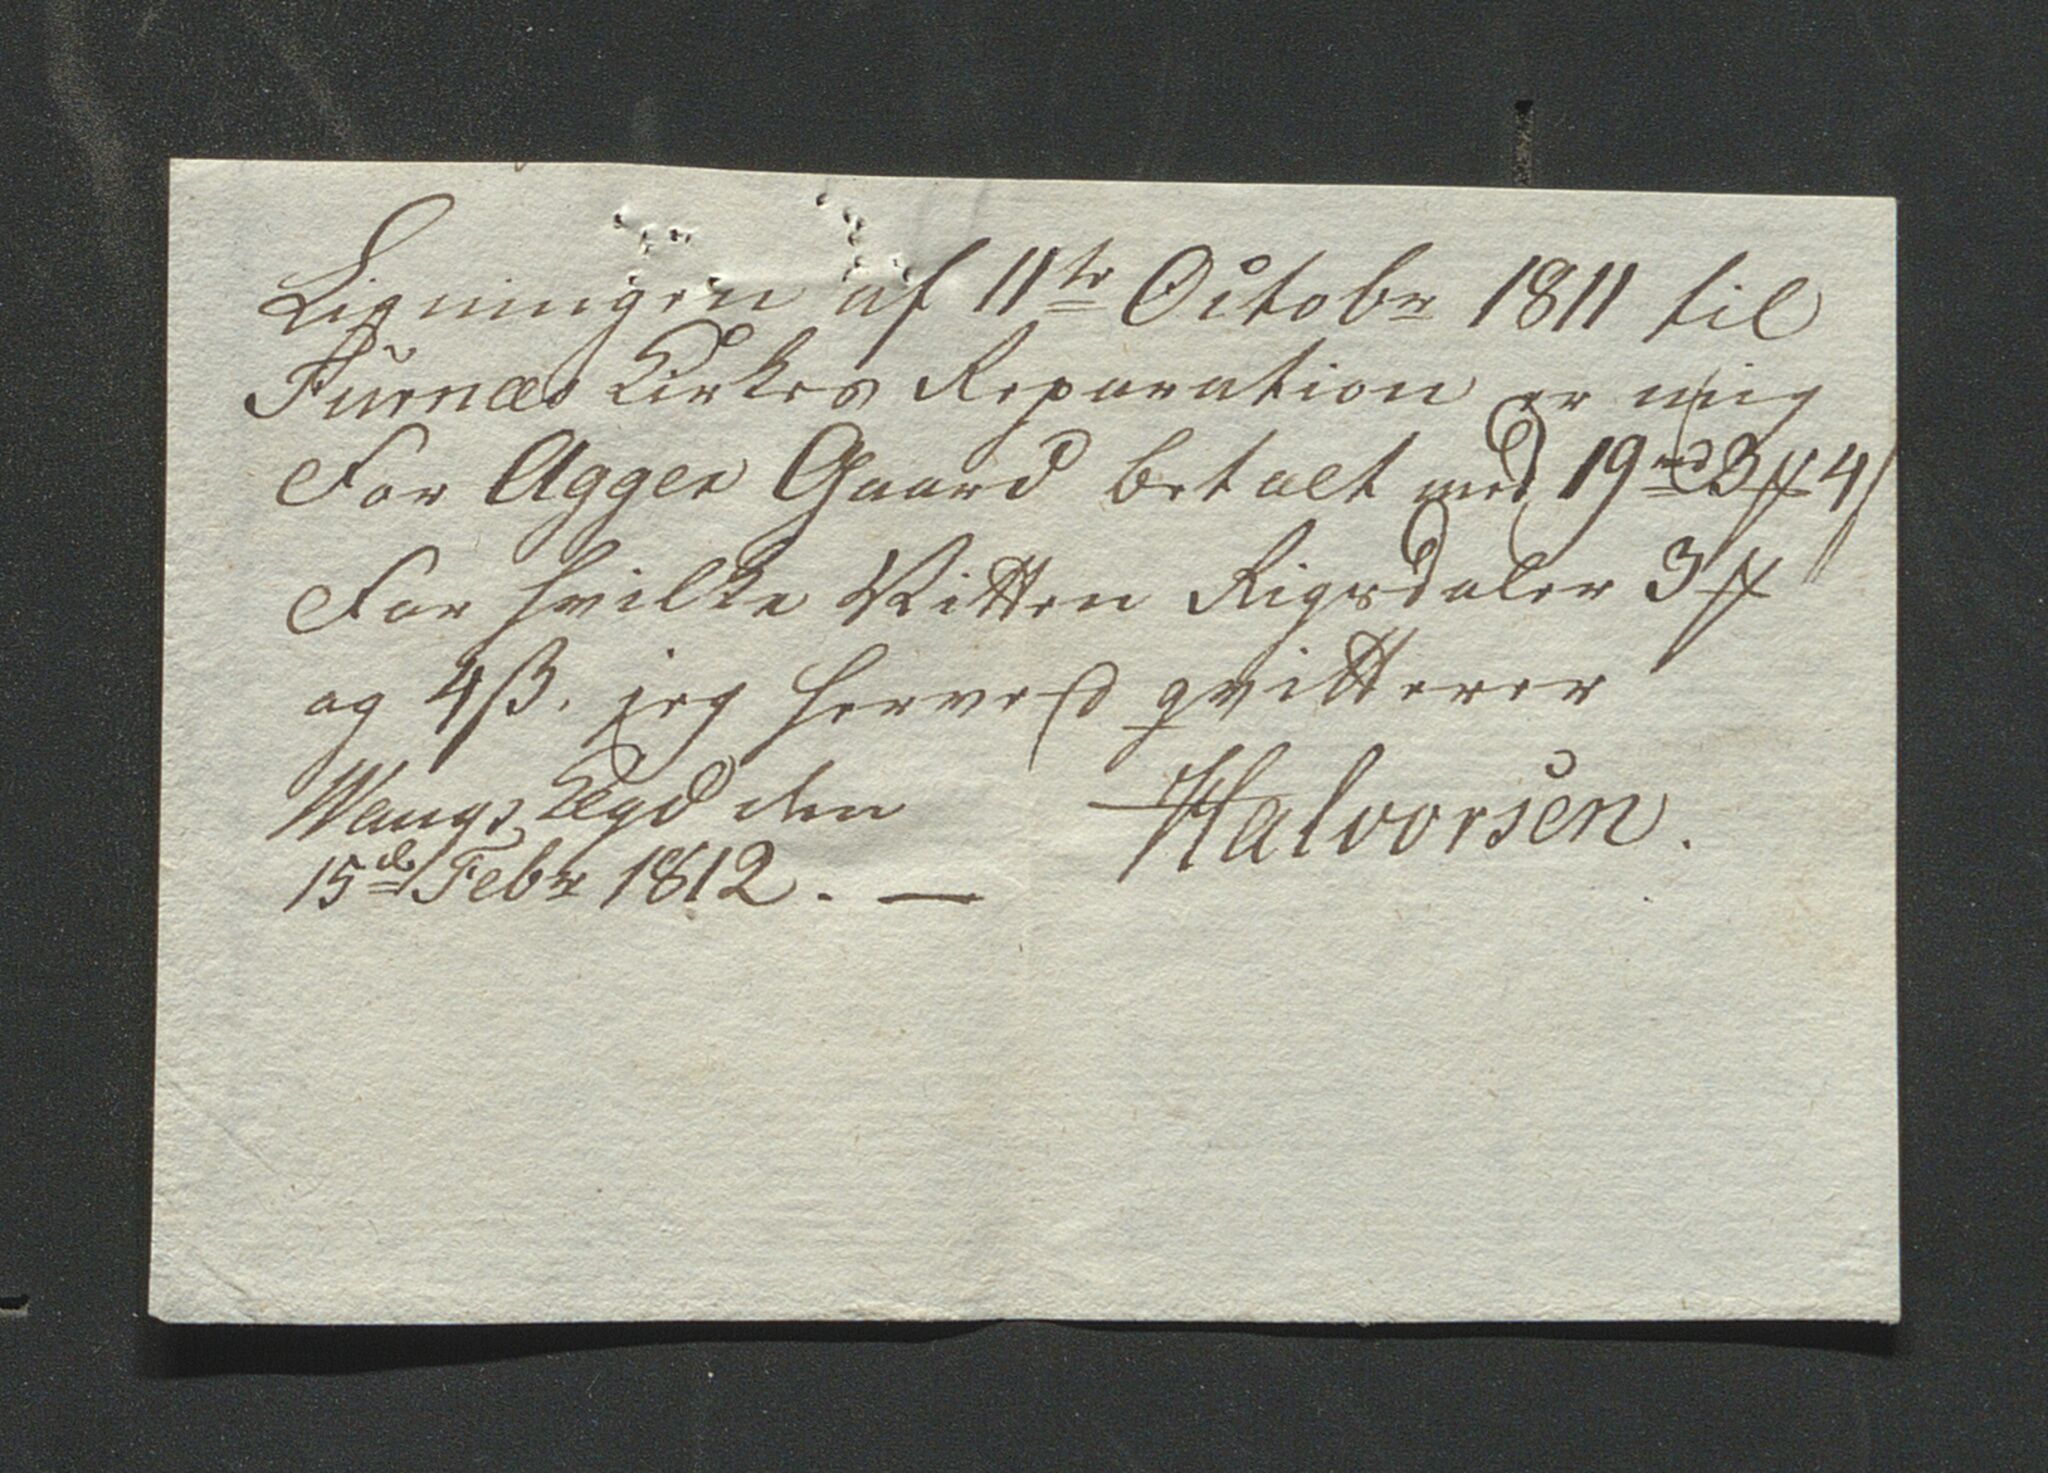 Ligningen af 11te Octobr 1811 til
Furnæs Kirkes Reparation er mig
For Agger Gaard betalt med 19rd 3 # 4 ß
For hvilke Nitten Rigsdaler 3 #
og 4 ß. jeg herved qvitterer
WangsÆgd den
15de Febr 1812. —
Halvorsen.